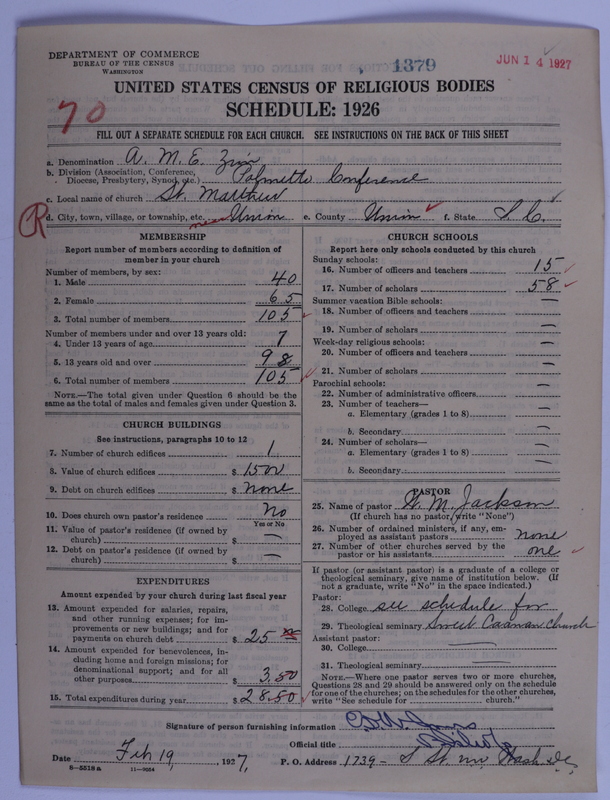 DEPARTMENT OF COMMERCE
BUREAU OF THE CENSUS
WASHINGTON
1379
JUN 14 1927
UNITED STATES CENSUS OF RELIGIOUS BODIES
SCHEDULE: 1926
70
FILL OUT A SEPARATE SCHEDULE FOR EACH CHURCH. SEE INSTRUCTIONS ON THE BACK OF THIS SHEET
a. Denomination A. M. E. Zion
b. Division (Association, Conference, Diocese, Presbytery, Synod, etc.) Palmetto Conference
c. Local name of church St. Matthew
R
d. City, town, village, or township, etc. near Union e. County Union f. State S. C.
MEMBERSHIP
Report number of members according to definition of
member in your church
Number of members, by sex:
1. Male 40
2. Female 65
3. Total number of members 105
Number of members under and over 13 years old:
4. Under 13 years of age 7
5. 13 years old and over 98
6. Total number of members 105
NOTE.—The total given under Question 6 should be
same as the total of males and females given under Question 3.
CHURCH BUILDINGS
See instructions, paragraphs 10 to 12
7. Number of church edifices 1
8. Value of church edifices $ 1500
9. Debt on church edifices $ none
10. Does church own pastor's residence no
Yes or No
11. Value of pastor's residence (if owned by
church) $ —
12. Debt on pastor's residence (if owned by
church) $ —
EXPENDITURES
Amount expended by your church during last fiscal year
13. Amount expended for salaries, repairs,
and other running expenses; for im-
provements or new buildings; and for
payments on church debt $ 25
14. Amount expended for benevolences, in-
cluding home and foreign missions; for
denominational support; and for all
other purposes $ 3.50
15. Total expenditures during year $ 28.50
CHURCH SCHOOLS
Report here only schools conducted by this church
Sunday schools:
16. Number of officers and teachers 15
17. Number of scholars 58
Summer vacation Bible schools:
18. Number of officers and teachers —
19. Number of scholars —
Week-day religious schools:
20. Number of officers and teachers —
21. Number of scholars —
Parochial schools:
22. Number of administrative officers —
23. Number of teachers—
a. Elementary (grades 1 to 8) —
b. Secondary —
24. Number of scholars—
a. Elementary (grades 1 to 8) —
b. Secondary —
PASTOR
25. Name of pastor W. M. Jackson
(If church has no pastor, write "None")
26. Number of ordained ministers, if any, em-
ployed as assistant pastors none
27. Number of other churches served by the
pastor or his assistants one
If pastor (or assistant pastor) is a graduate of a college or
theological seminary, give name of institution below. (If
not a graduate, write "No" in the space indicated.)
Pastor:
28. College see schedule for
29. Theological seminary Sweet Caanan church
Assistant pastor:
30. College —
31. Theological seminary —
NOTE.—Where one pastor serves two or more churches,
Questions 28 and 29 should be answered only on the schedule
for one of the churches; on the schedules for the other churches,
write "See schedule for church."
Signature of person furnishing information
Official title
Date Feb 19, 1927, P. O. Address 1739 - S St. nw Wash D.C.
8—5518a 11—9054